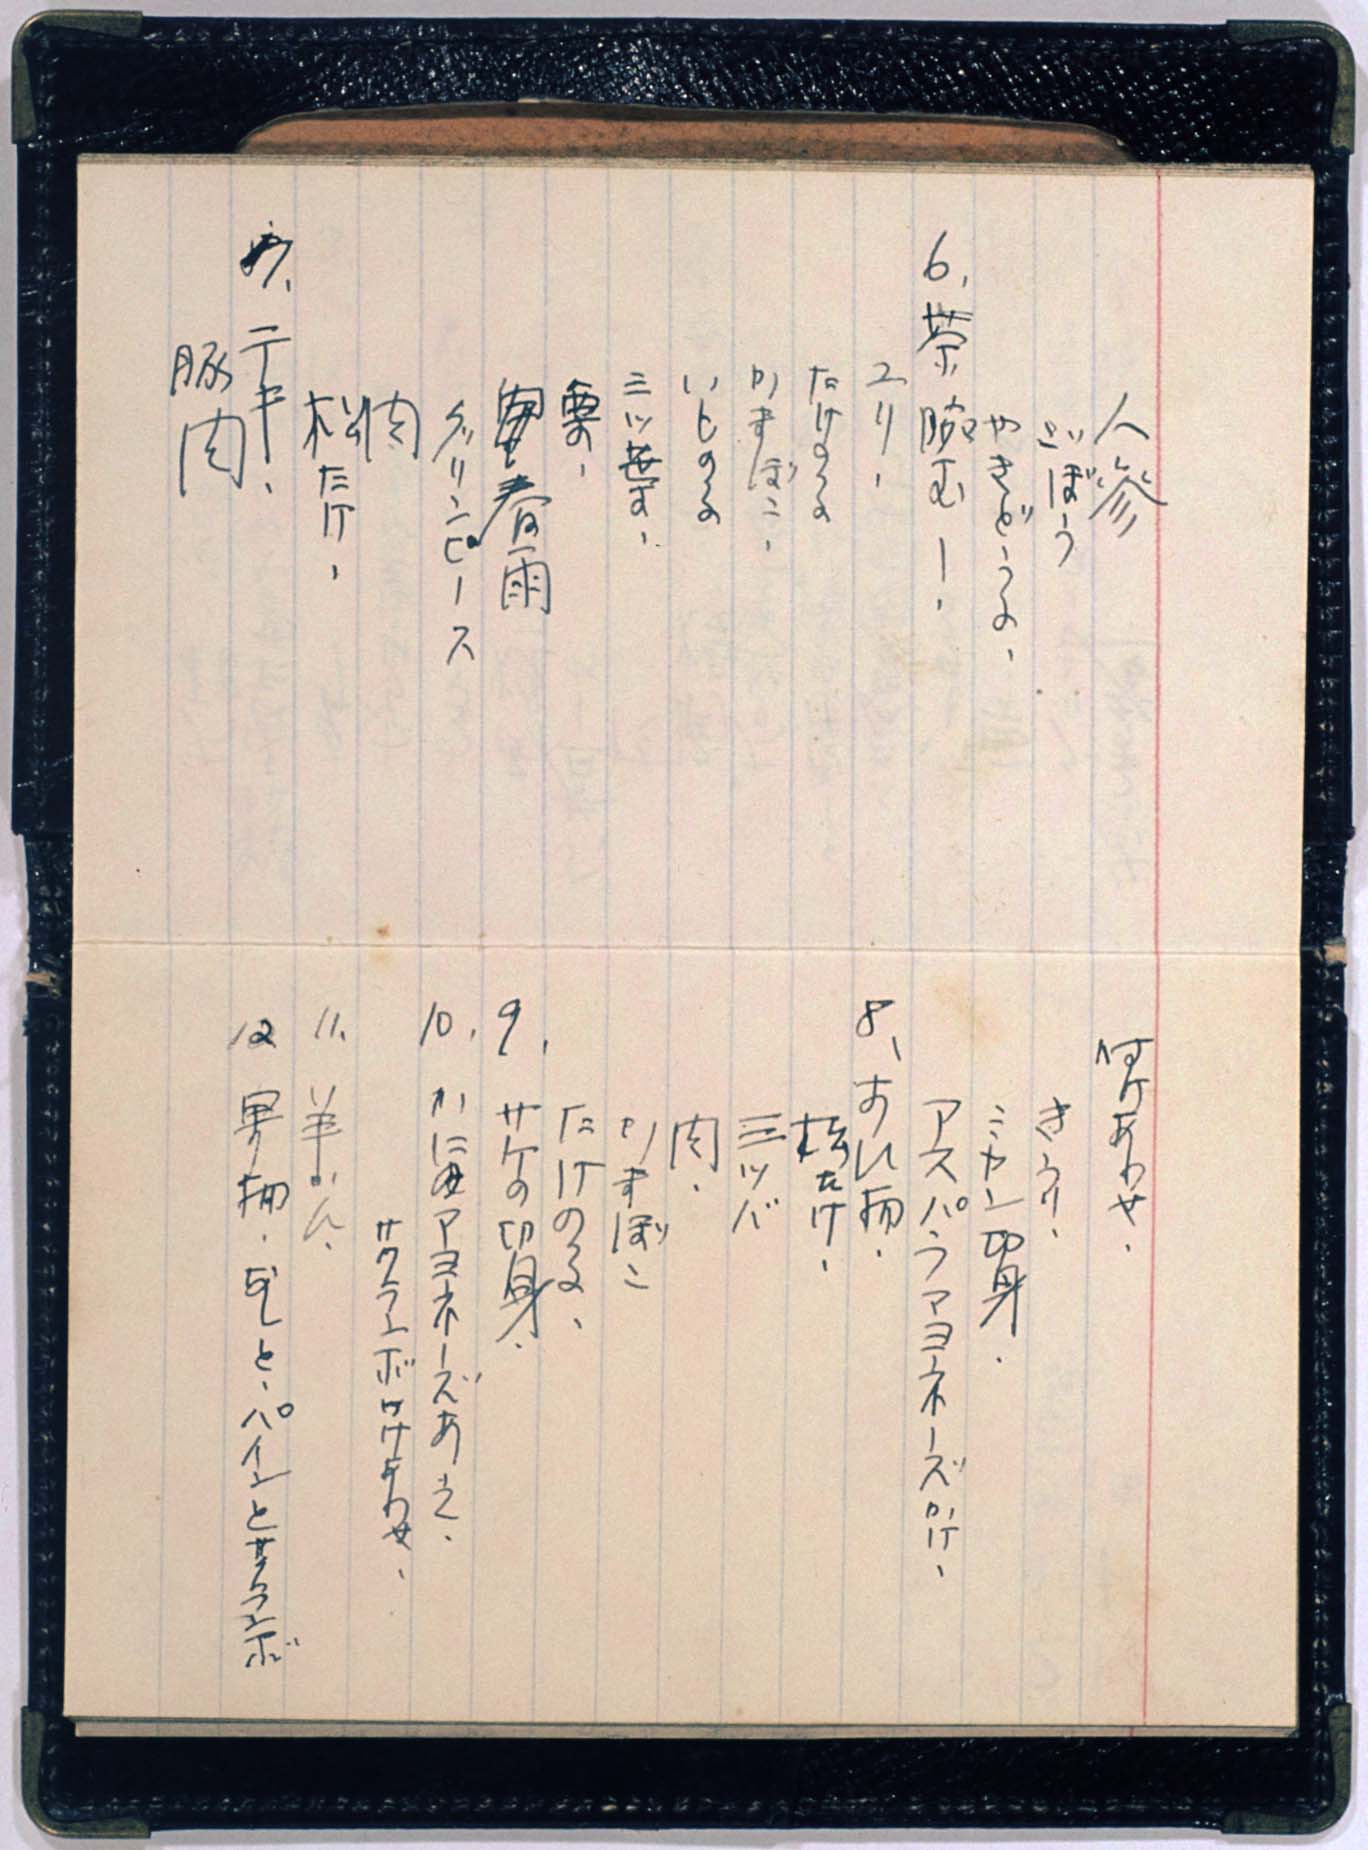 人参
ごぼう
やきどうふ、
6、茶腕むし、
ユリ、
たけのこ
かまぼこ、
いとのこ
三ツ葉、
栗、
春雨
グリンピース
肉
松たけ、
7、テキ、
豚肉
付けあわせ、
きうり、
ミカン切身、
アスパラマヨネーズかけ、
8、すい物、
松たけ、
三ツバ
肉、
かまぼこ
たけのこ、
9、サケの切身、
10、かにマヨネーズあえ、
サクランボ付けあわせ、
11、羊かん、
12、果物、